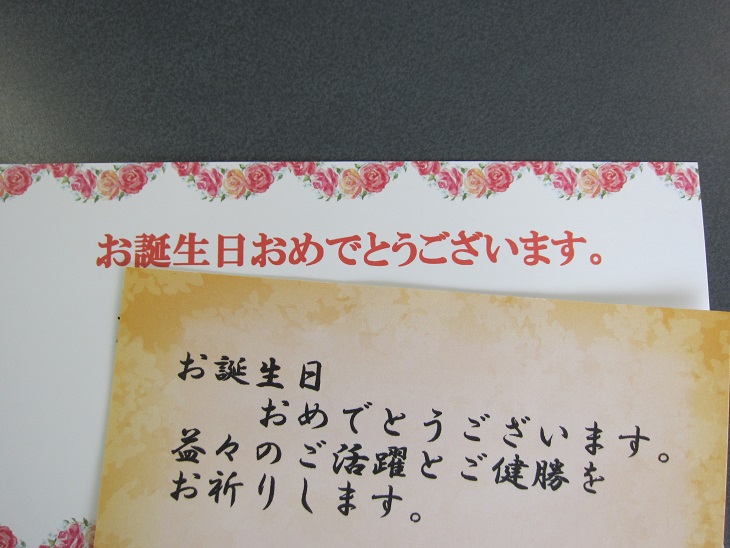 お誕生日おめでとうございます。
お誕生日
おめでとうございます。
益々のご活躍とご健勝を
お祈りします。